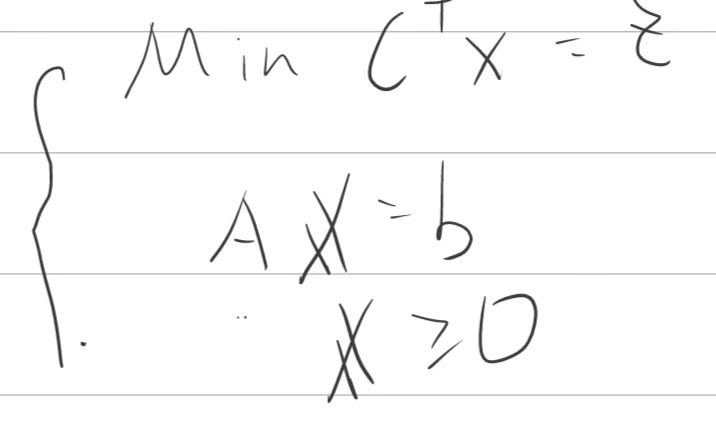 Min Cᵀx = z
AX = b
X ≥ 0